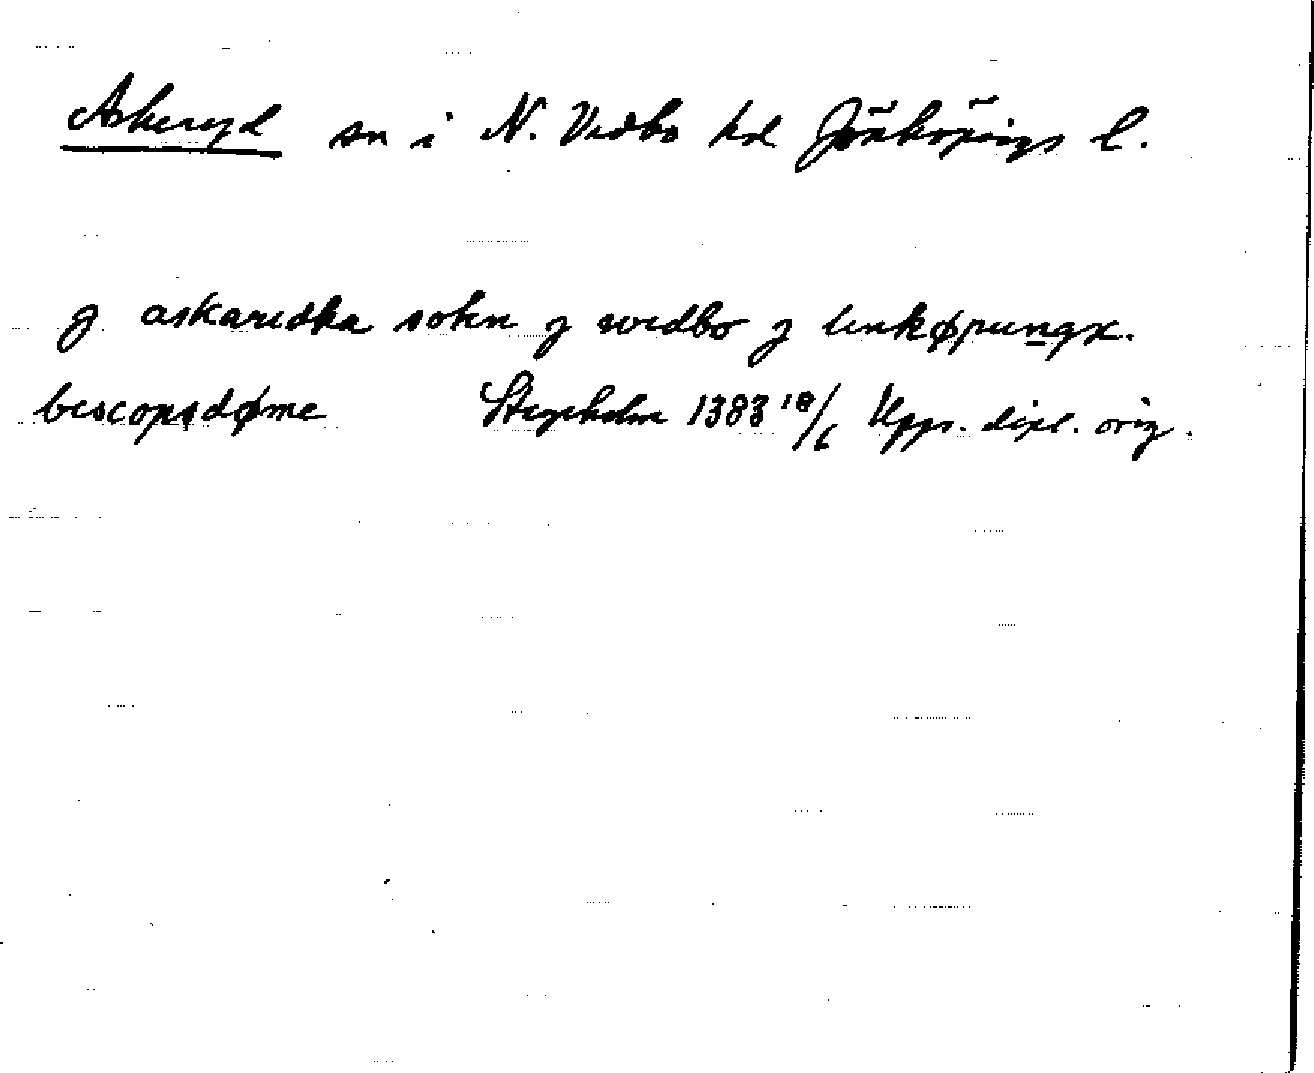 Askeryd sn i N. Vedbo hd Jönköpings l.
j askaredha sokn j wedbo j lenkøpungx.
bescopsdøme Stegeholm 1383 18/6 Upps. dipl. orig.